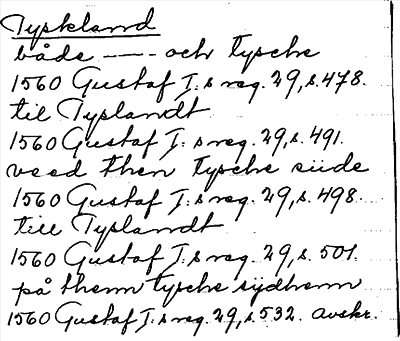 Tyskland
både —— och tysche
1560 Gustaf I:s reg. 29, s. 478.
til Tyslandt
1560 Gustaf I:s reg. 29, s. 491.
veed then tysche siide
1560 Gustaf I:s reg. 29, s. 498.
till Tyslandt
1560 Gustaf I:s reg. 29, s. 501.
på them tysche sydhenn
1560 Gustaf I:s reg. 29, s. 532. avskr.